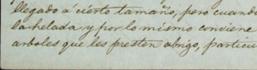 llegado á cierto tamaño, pero cuando
la helada, y por lo mismo conviene
arboles que les presten abrigo, particu